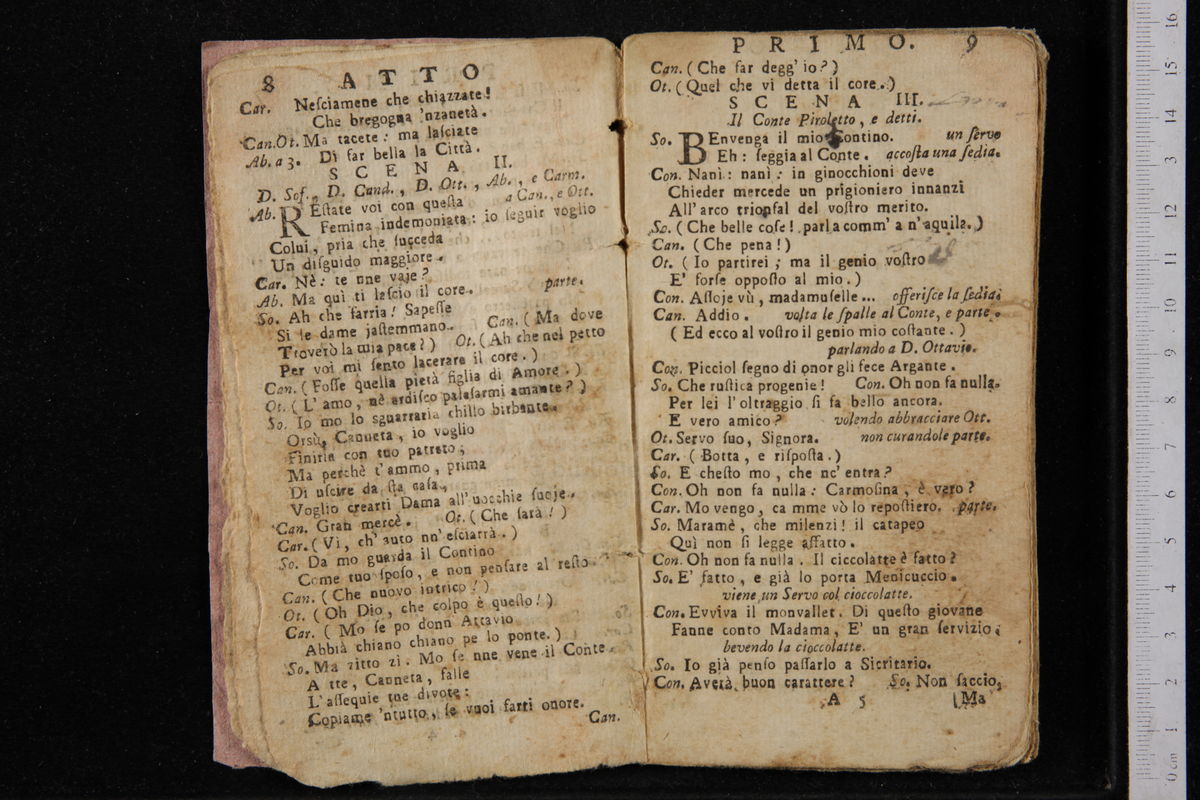 8 ATTO
Car. Neſciamene che chiazzate!
Che bregogna 'nzanetà.
Can.Ot. Ma tacete: ma laſciate
Ab. a 3. Di far bella la Città.
SCENA II.
D. Sof., D. Cand., D. Ott., Ab., e Carm.
Ab. REſtate voi con queſta a Can., e Ott.
Femina indemoniata: io ſeguir voglio
Colui, pria che ſucceda
Un diſguido maggiore.
Car. Nè: te nne vaje?
Ab. Ma quì ti laſcio il core. parte.
So. Ah che ſarria! Sapeſſe
Si ſe dame jaſtemmano. Can. (Ma dove
Troverò la mia pace?) Ot. (Ah che nel petto
Per voi mi ſento lacerare il core.)
Can. (Foſſe quella pietà figlia di Amore.)
Ot. (L'amo, nè ardiſco palaſarmi amante?)
So. Io mo lo sguarraria chillo birbante.
Orsù, Canneta, io voglio
Finirla con tuo patreto;
Ma perchè t'ammo, prima
Di uſcire da ſta caſa,
Voglio crearti Dama all'uocchie ſuoje.
Can. Gran mercè. Ot. (Che ſarà!)
Car. (Vì, ch'auto nn'eſciarrà.)
So. Da mo guarda il Contino
Come tuo ſpoſo, e non penſare al reſto.
Can. (Che nuovo intrico!)
Ot. (Oh Dio, che colpo è queſto!)
Car. (Mo ſe po donn Attavio
Abbià chiano chiano pe lo ponte.)
So. Ma zitto zì. Mo ſe nne vene il Conte.
A tte, Canneta, falle
L'aſſequie tue divote:
Copiame 'ntutto, ſe vuoi farti onore.
Can.
PRIMO. 9
Can. (Che far degg'io?)
Ot. (Quel che vi detta il core.)
SCENA III.
Il Conte Piroletto, e detti.
So. BEnvenga il mio Contino. un ſervo
Eh: ſeggia al Conte. accoſta una ſedia.
Con. Nani: nani: in ginocchioni deve
Chieder mercede un prigioniero innanzi
All'arco trionfal del voſtro merito.
So. (Che belle coſe! parla comm'a n'aquila.)
Can. (Che pena!)
Ot. (Io partirei; ma il genio voſtro
E' forſe oppoſto al mio.)
Con. Aſſoje vù, madamuſelle... offeriſce la ſedia.
Can. Addio. volta le ſpalle al Conte, e parte.
(Ed ecco al voſtro il genio mio coſtante.)
parlando a D. Ottavio.
Con. Picciol ſegno di onor gli fece Argante.
So. Che ruſtica progenie! Con. Oh non fa nulla.
Per lei l'oltraggio ſi fa bello ancora.
E vero amico? volendo abbracciare Ott.
Ot. Servo ſuo, Signora. non curandole parte.
Car. (Botta, e riſpoſta.)
So. E cheſto mo, che nc'entra?
Con. Oh non fa nulla: Carmoſina, è vero?
Car. Mo vengo, ca mme vò lo repoſtiero. parte.
So. Maramè, che milenzi! il catapeo
Quì non ſi legge affatto.
Con. Oh non fa nulla. Il ciccolatte è fatto?
So. E' fatto, e già lo porta Menicuccio.
viene un Servo col cioccolatte.
Con. Evviva il monvallet. Di queſto giovane
Fanne conto Madama, E' un gran ſervizio.
bevendo la cioccolatte.
So. Io già penſo paſſarlo a Sicritario.
Con. Averà buon carattere? So. Non ſaccio,
A 5 Ma